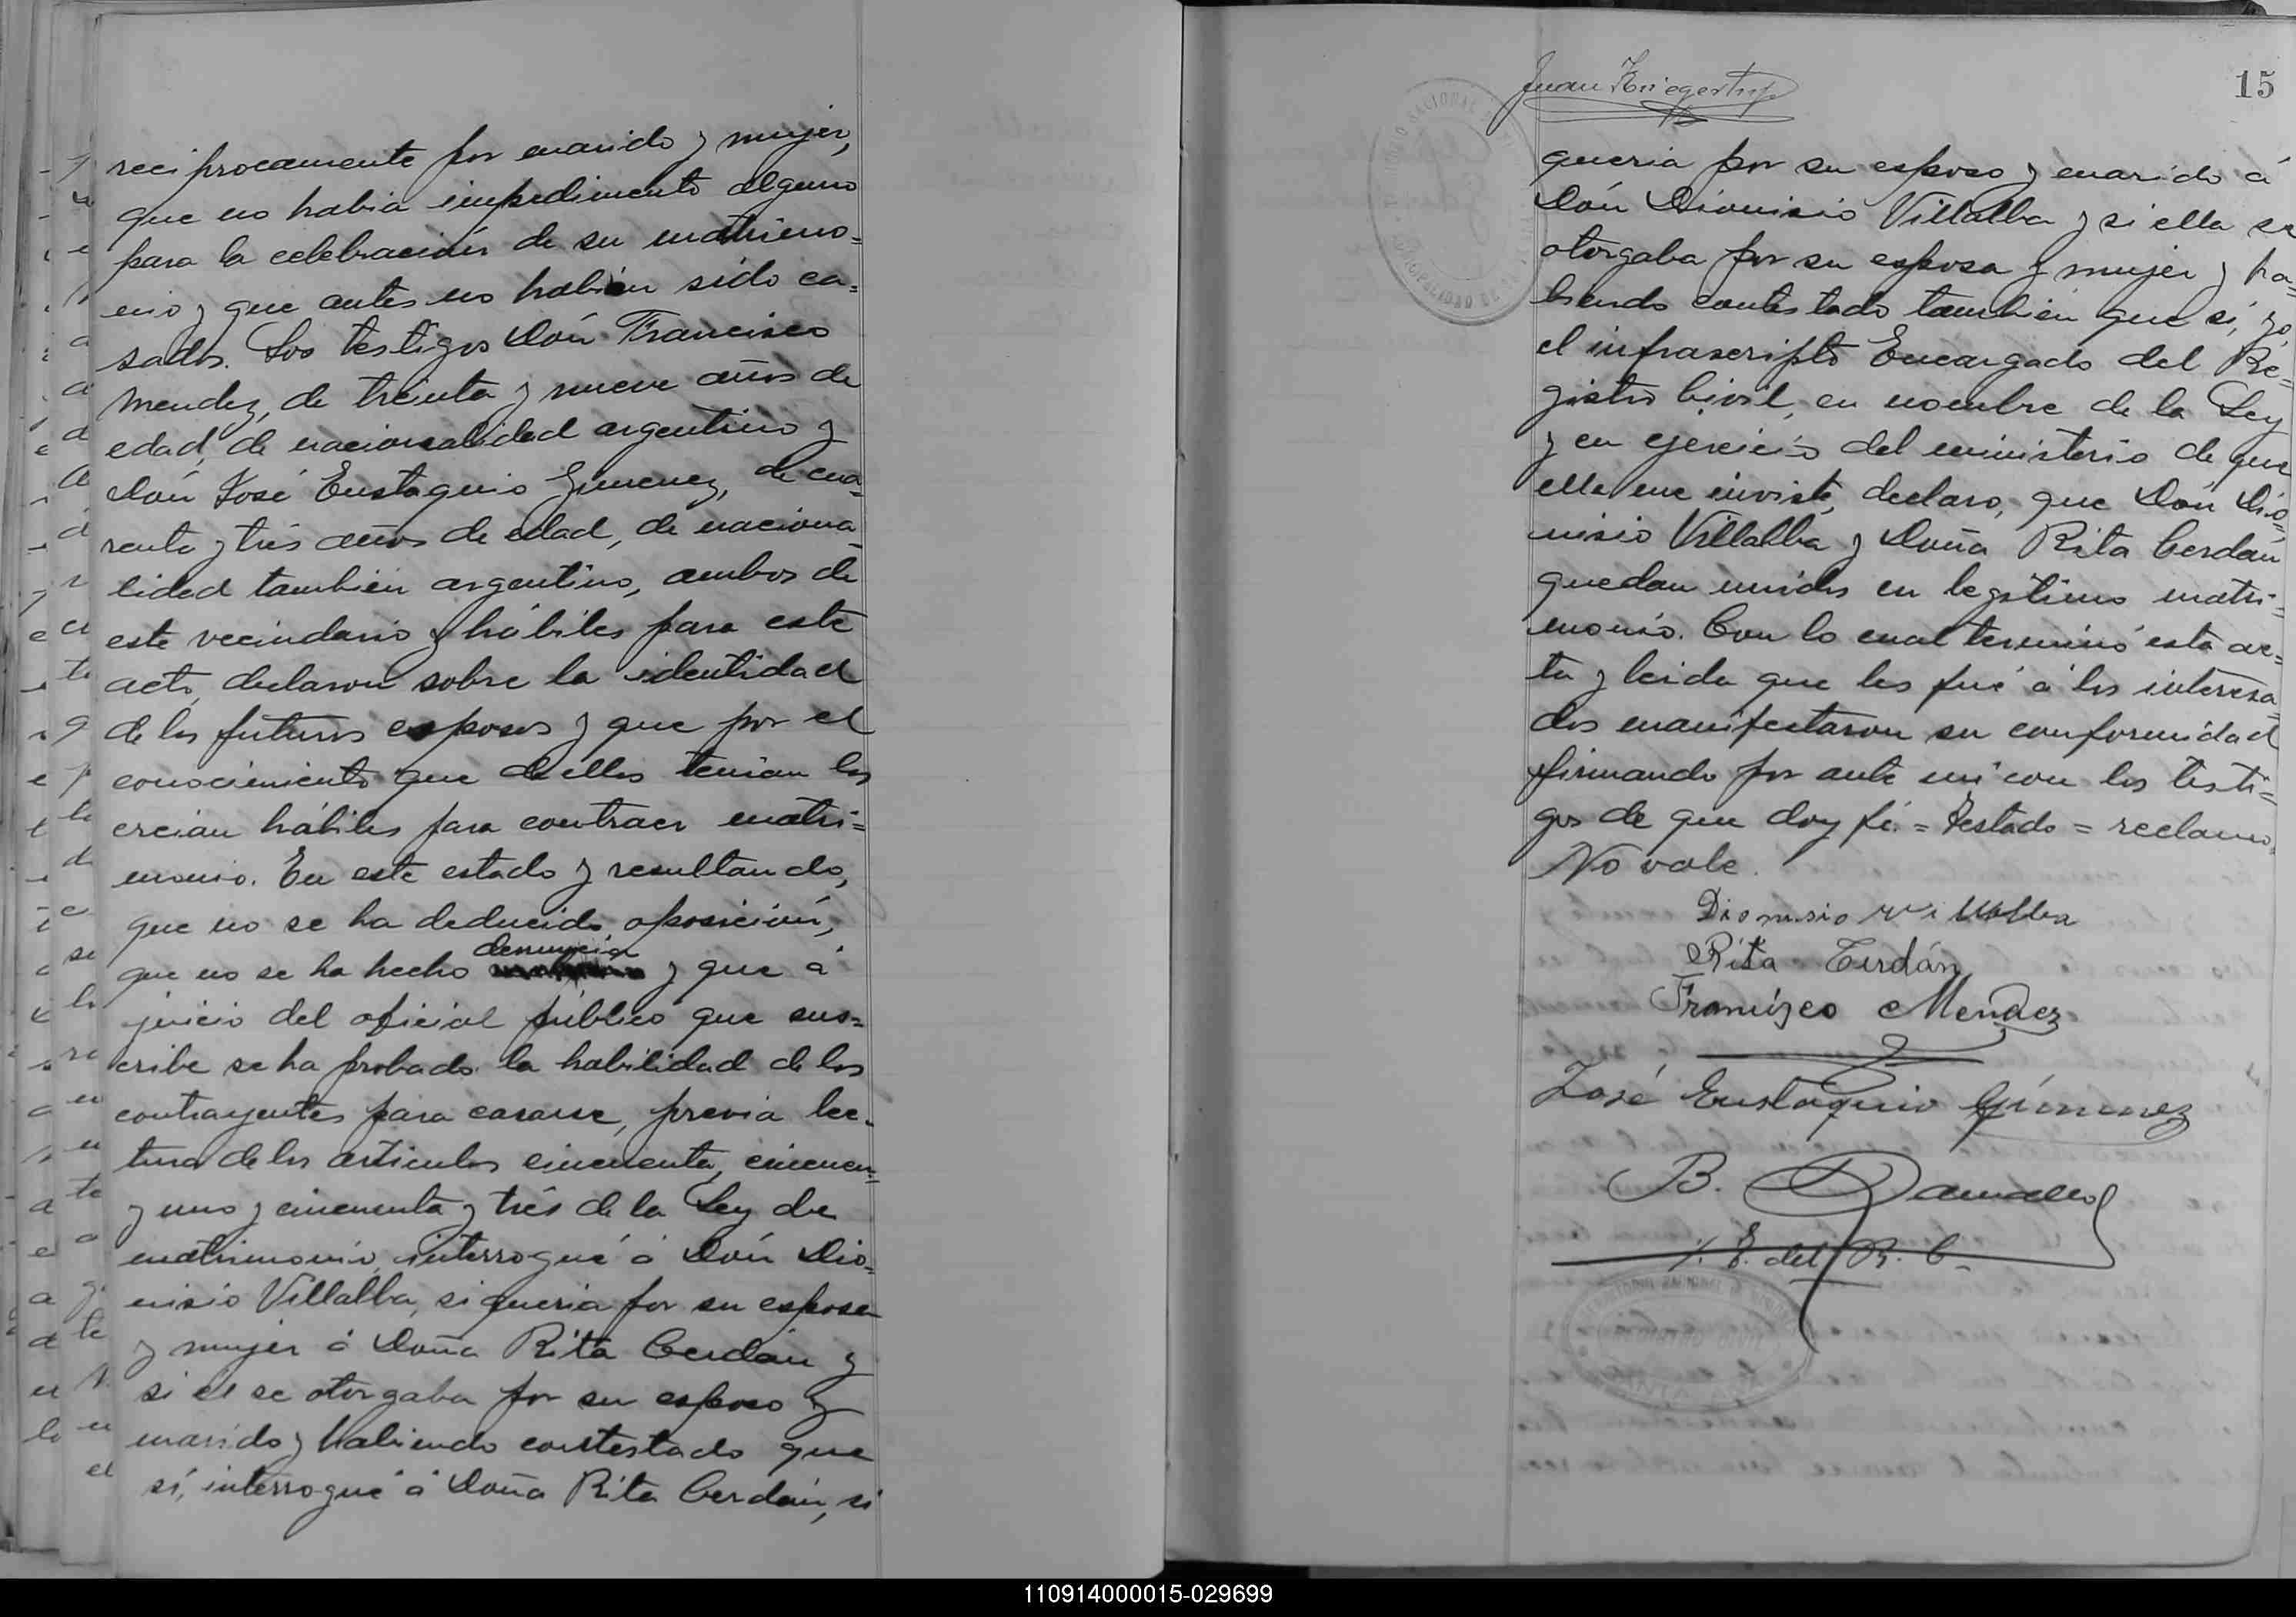 reciprocamente por marido y mujer,
que no habia impedimento alguno
para la celebración de su matrimo=
nio y que antes no habían sido ca=
sados. Los testigos Dón Francisco
Mendez, de treinta y nueve años de
edad, de nacionalidad argentino y
Dón José Eustaquio Gimenez, de cua=
renta y trés años de edad, de naciona=
lidad tambien argentino, ambos de
este vecindario y hábiles para este
acto, declaron sobre la identidad
de los futuros esposos y que por el
conocimiento que de ellos tenian los
creian hábiles para contraer matri=
monio. En este estado y resultando,
que no se ha deducido oposición,
denuncia
que no se ha hecho y que á
juicio del oficial público que sus=
cribe se ha probado la habilidad de los
contrayentes para casarse, previa lec=
tura de los articulos cincuenta, cincuen=
y uno y cincuenta y trés de la Ley de
matrimonio, interrogué á Dón Dio=
nisio Villalba, si queria por su esposa
y mujer á Doña Rita Cerdán y
si él se otorgaba por su esposo y
marido y habiendo contestado que
sí, interrogué á Doña Rita Cerdán, si
15
Juan
queria por su esposo y marido á
Dón Dionisio Villalba y si ella se
otorgaba por su esposa y mujer y ha=
biendo contestado tambien que sí, yo,
el infrascripto Encargado del Re=
gistro Civil, en nombre de la Ley
y en ejercicio del ministerio de que
ella me inviste, declaro, que Dón Dio=
nisio Villalba y Doña Rita Cerdán
quedan unidos en legítimo matri=
monio. Con lo cual terminó esta ac=
ta y leida que les fué á los interesa=
dos manifestaron su conformidad
firmando por ante mí con los testi=
gos de que doy fé. = Testado = reclamo
No vale.
Dionisio Villalba
Rita Cerdán
Francisco Mendez
José Eustaquio Gimenez
B.
E. del R. C.
110914000015-029699